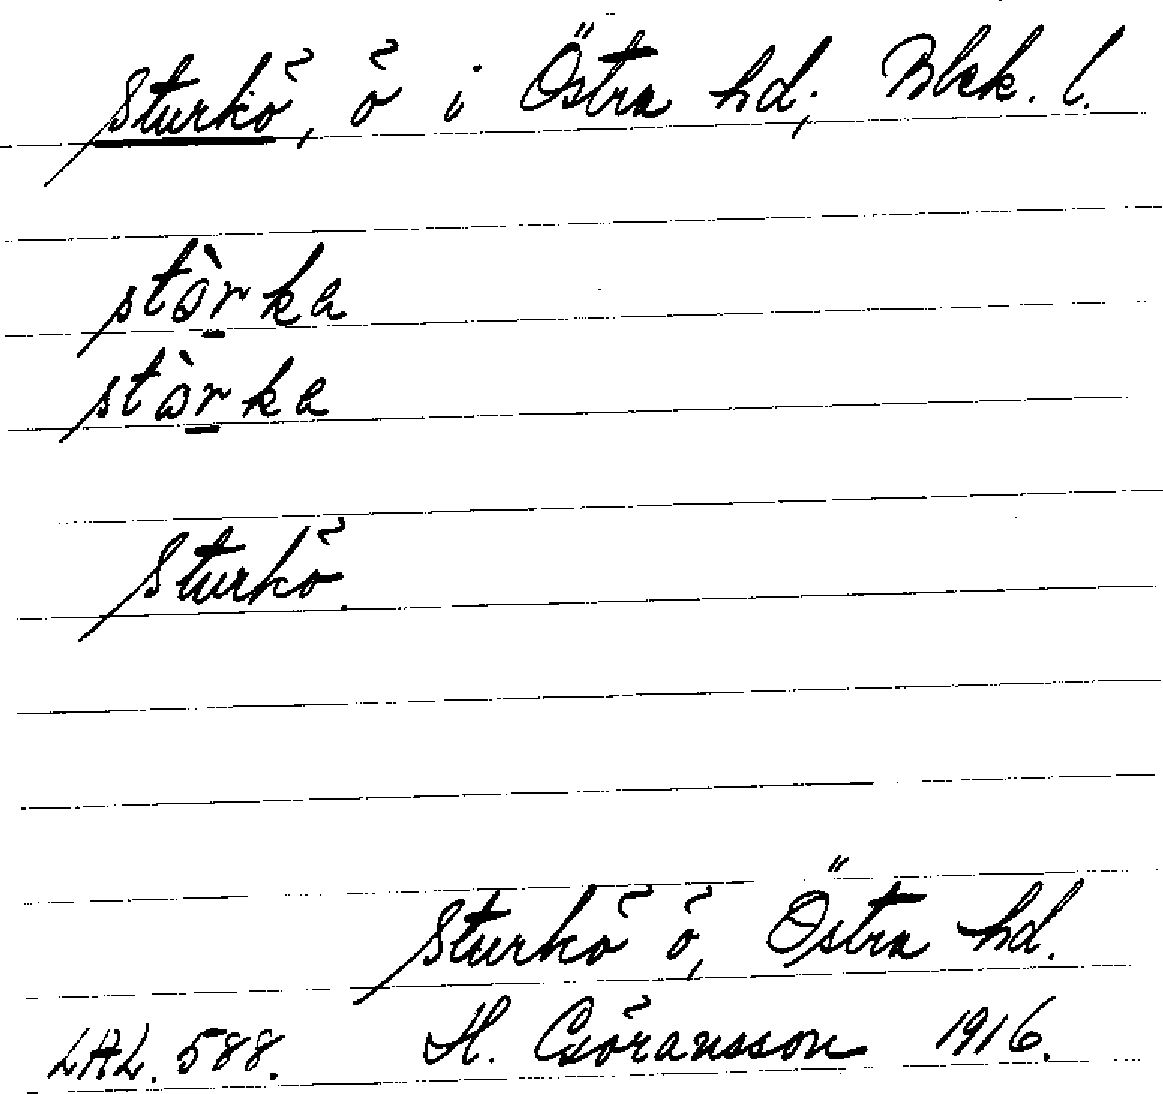 Sturkö, ö i Östra hd, Blek. l.
stòrka
stòrka
Sturkö.
Sturkö ö, Östra hd.
LAL. 588. H. Göransson 1916.